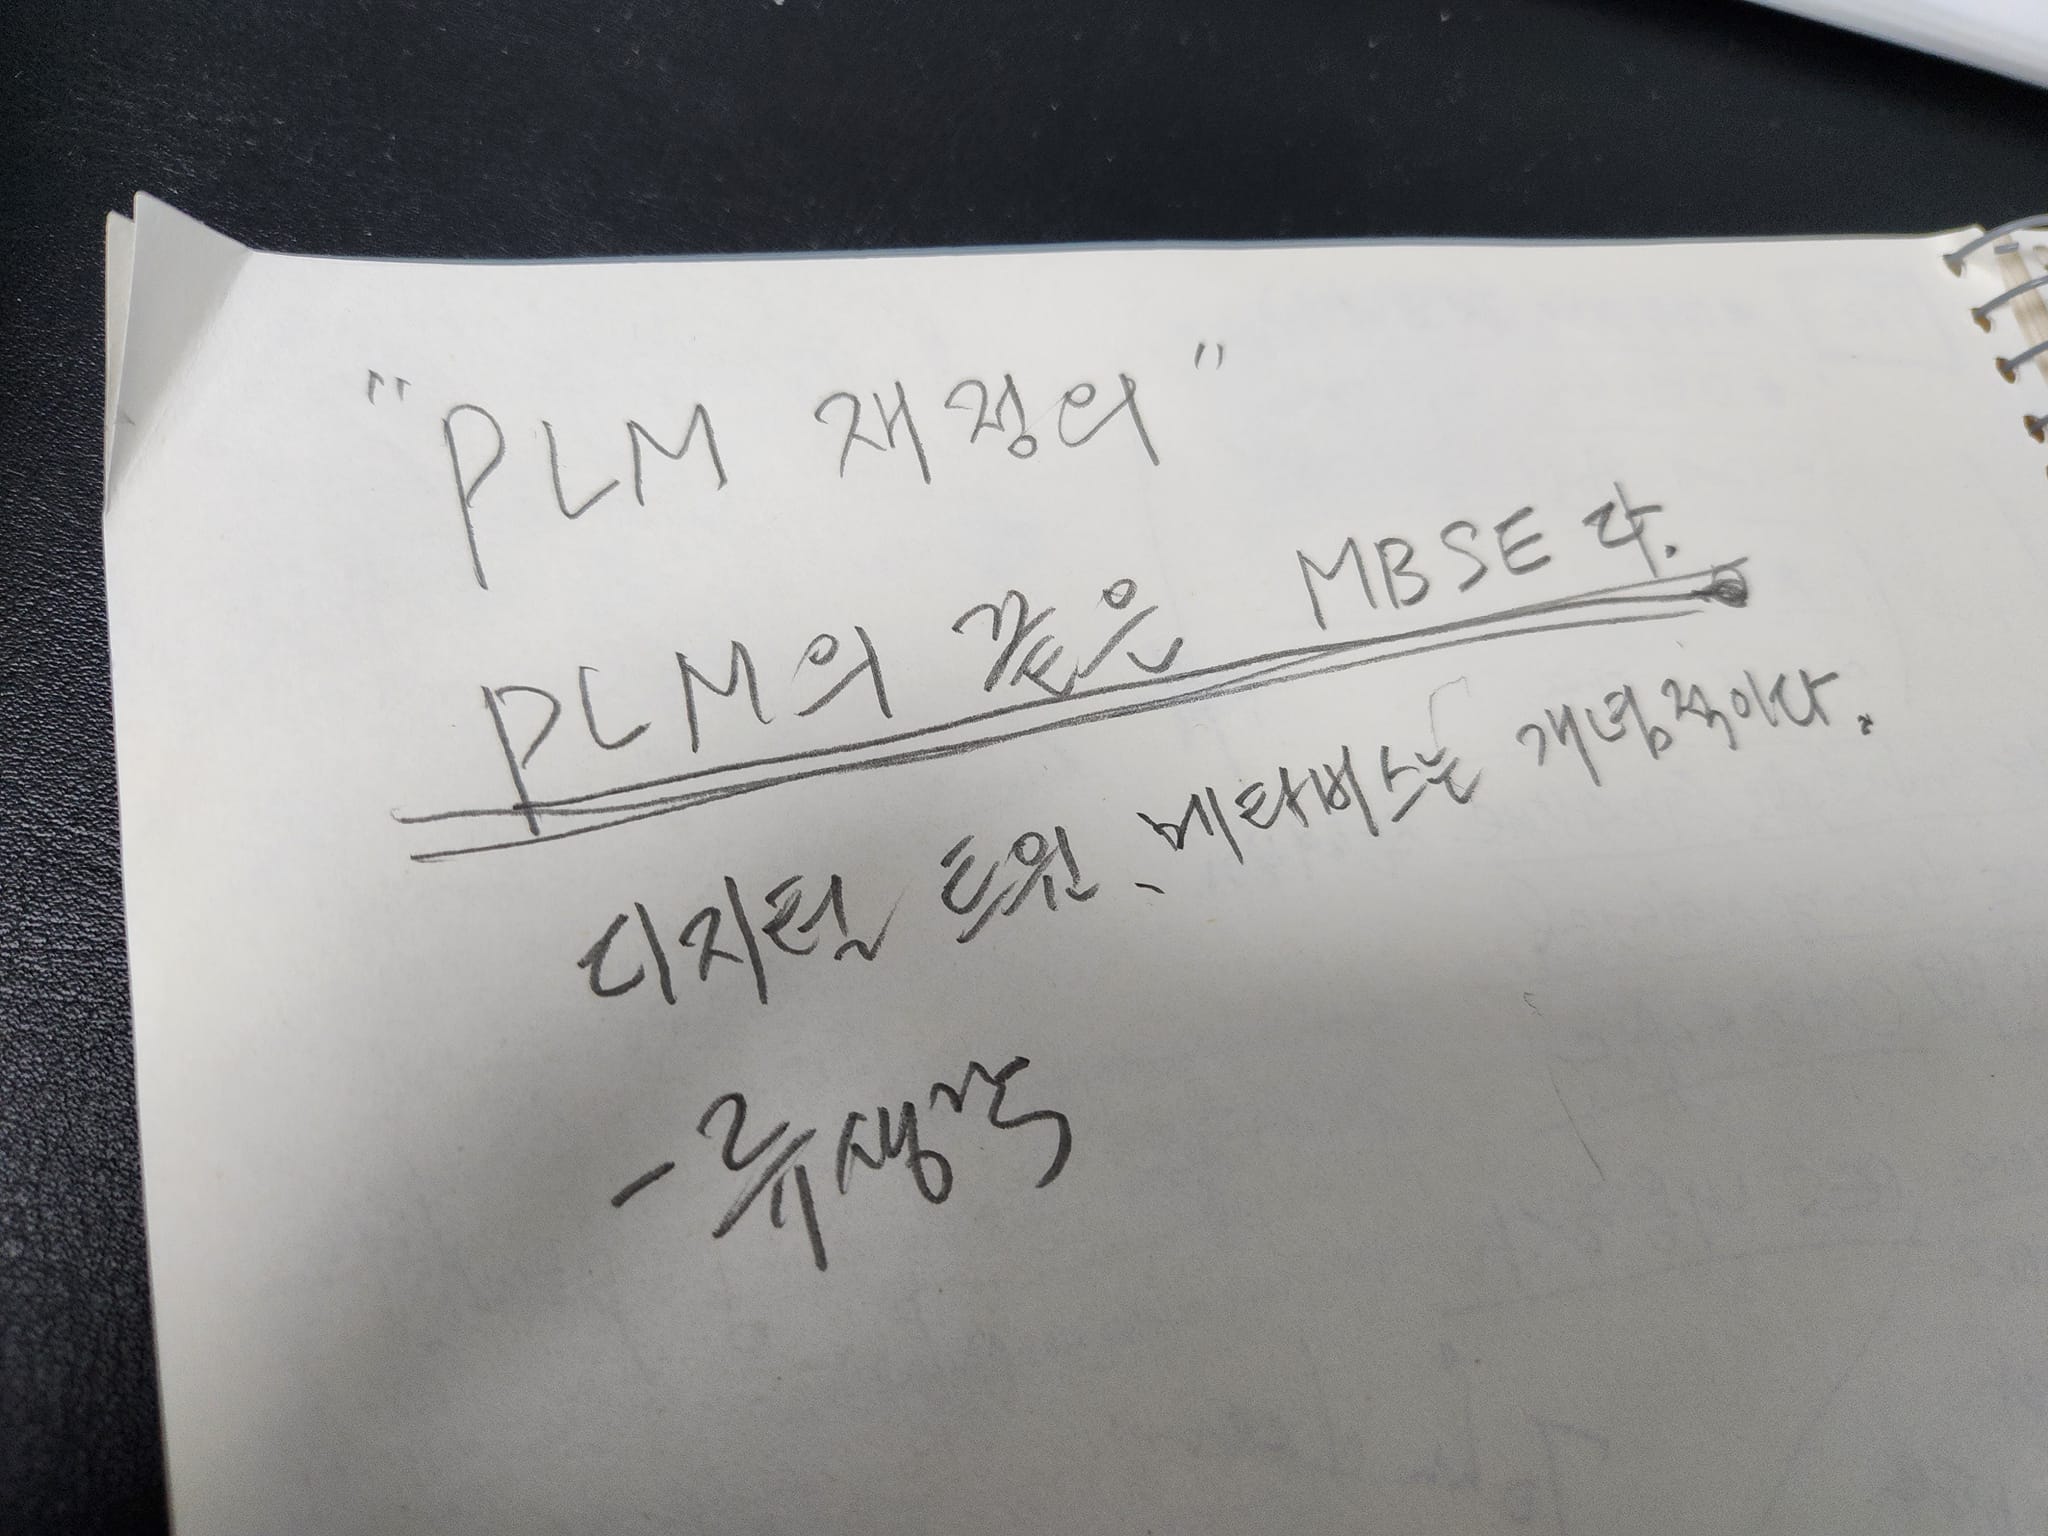 "PLM 재정의"
PLM의 끝은 MBSE 다.
디지털 트윈, 메타버스는 개념적이다.
- 류생각